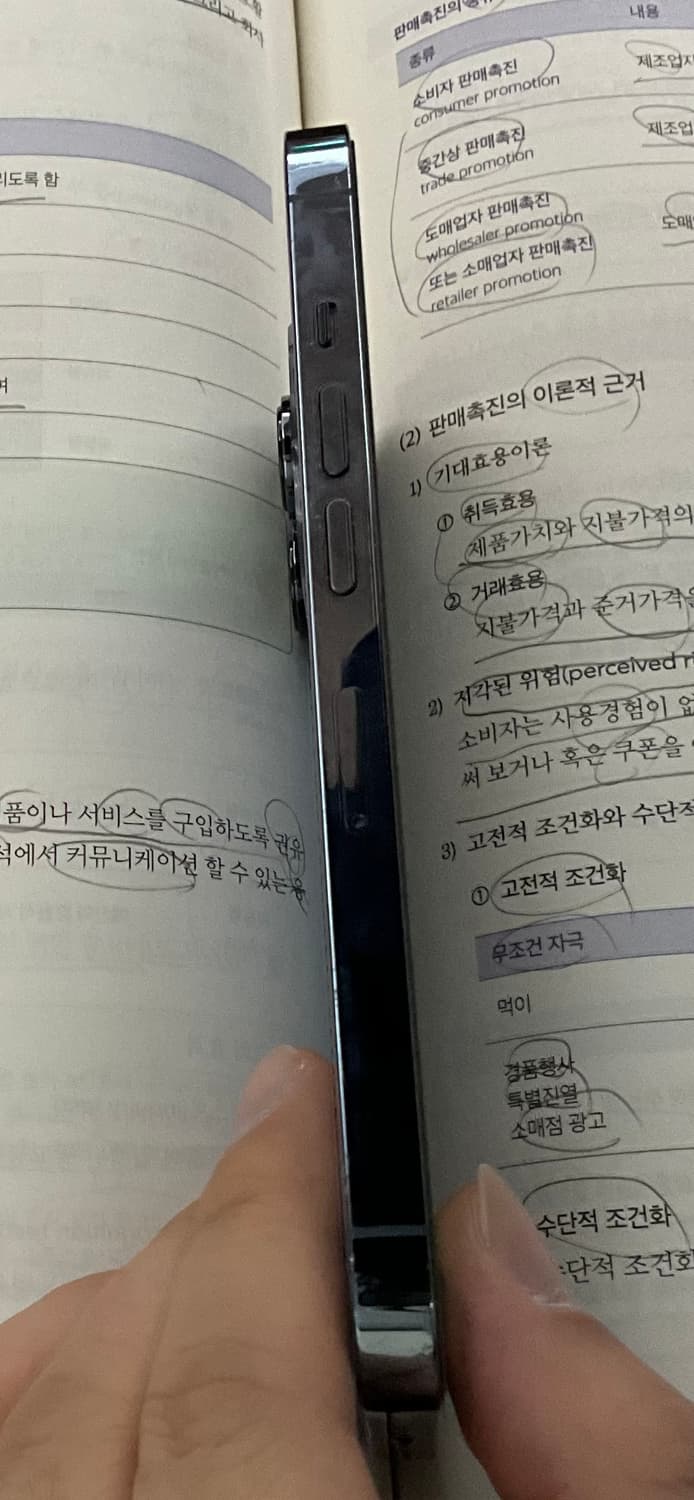 리도록 함
여
품이나 서비스를 구입하도록 권유
석에서 커뮤니케이션 할 수 있는
판매촉진의
종류
내용
소비자 판매촉진
consumer promotion
제조업자
중간상 판매촉진
trade promotion
제조업
도매업자 판매촉진
wholesaler promotion
도매
또는 소매업자 판매촉진
retailer promotion
(2) 판매촉진의 이론적 근거
1) 기대효용이론
① 취득효용
제품가치와 지불가격의
② 거래효용
지불가격과 준거가격을
2) 지각된 위험(perceived ri
소비자는 사용경험이 없
써 보거나 혹은 쿠폰을
3) 고전적 조건화와 수단적
① 고전적 조건화
무조건 자극
먹이
경품행사
특별진열
소매점 광고
수단적 조건화
수단적 조건화